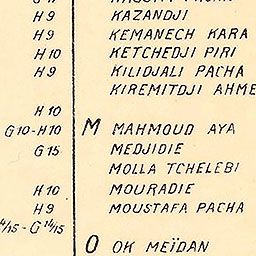 H 9 KAZANDJI
H 9 KEMANECH KARA
H 10 KETCHEDJI PIRI
H 9 KILIDJALI PACHA
KIREMITDJI AHME
H 10
G 10 - H 10 M MAHMOUD AYA
G 15 MEDJIDIE
MOLLA TCHELEBI
H 10 MOURADIE
H 9 MOUSTAFA PACHA
4/15 - G 14/15
O OK MEÏDAN